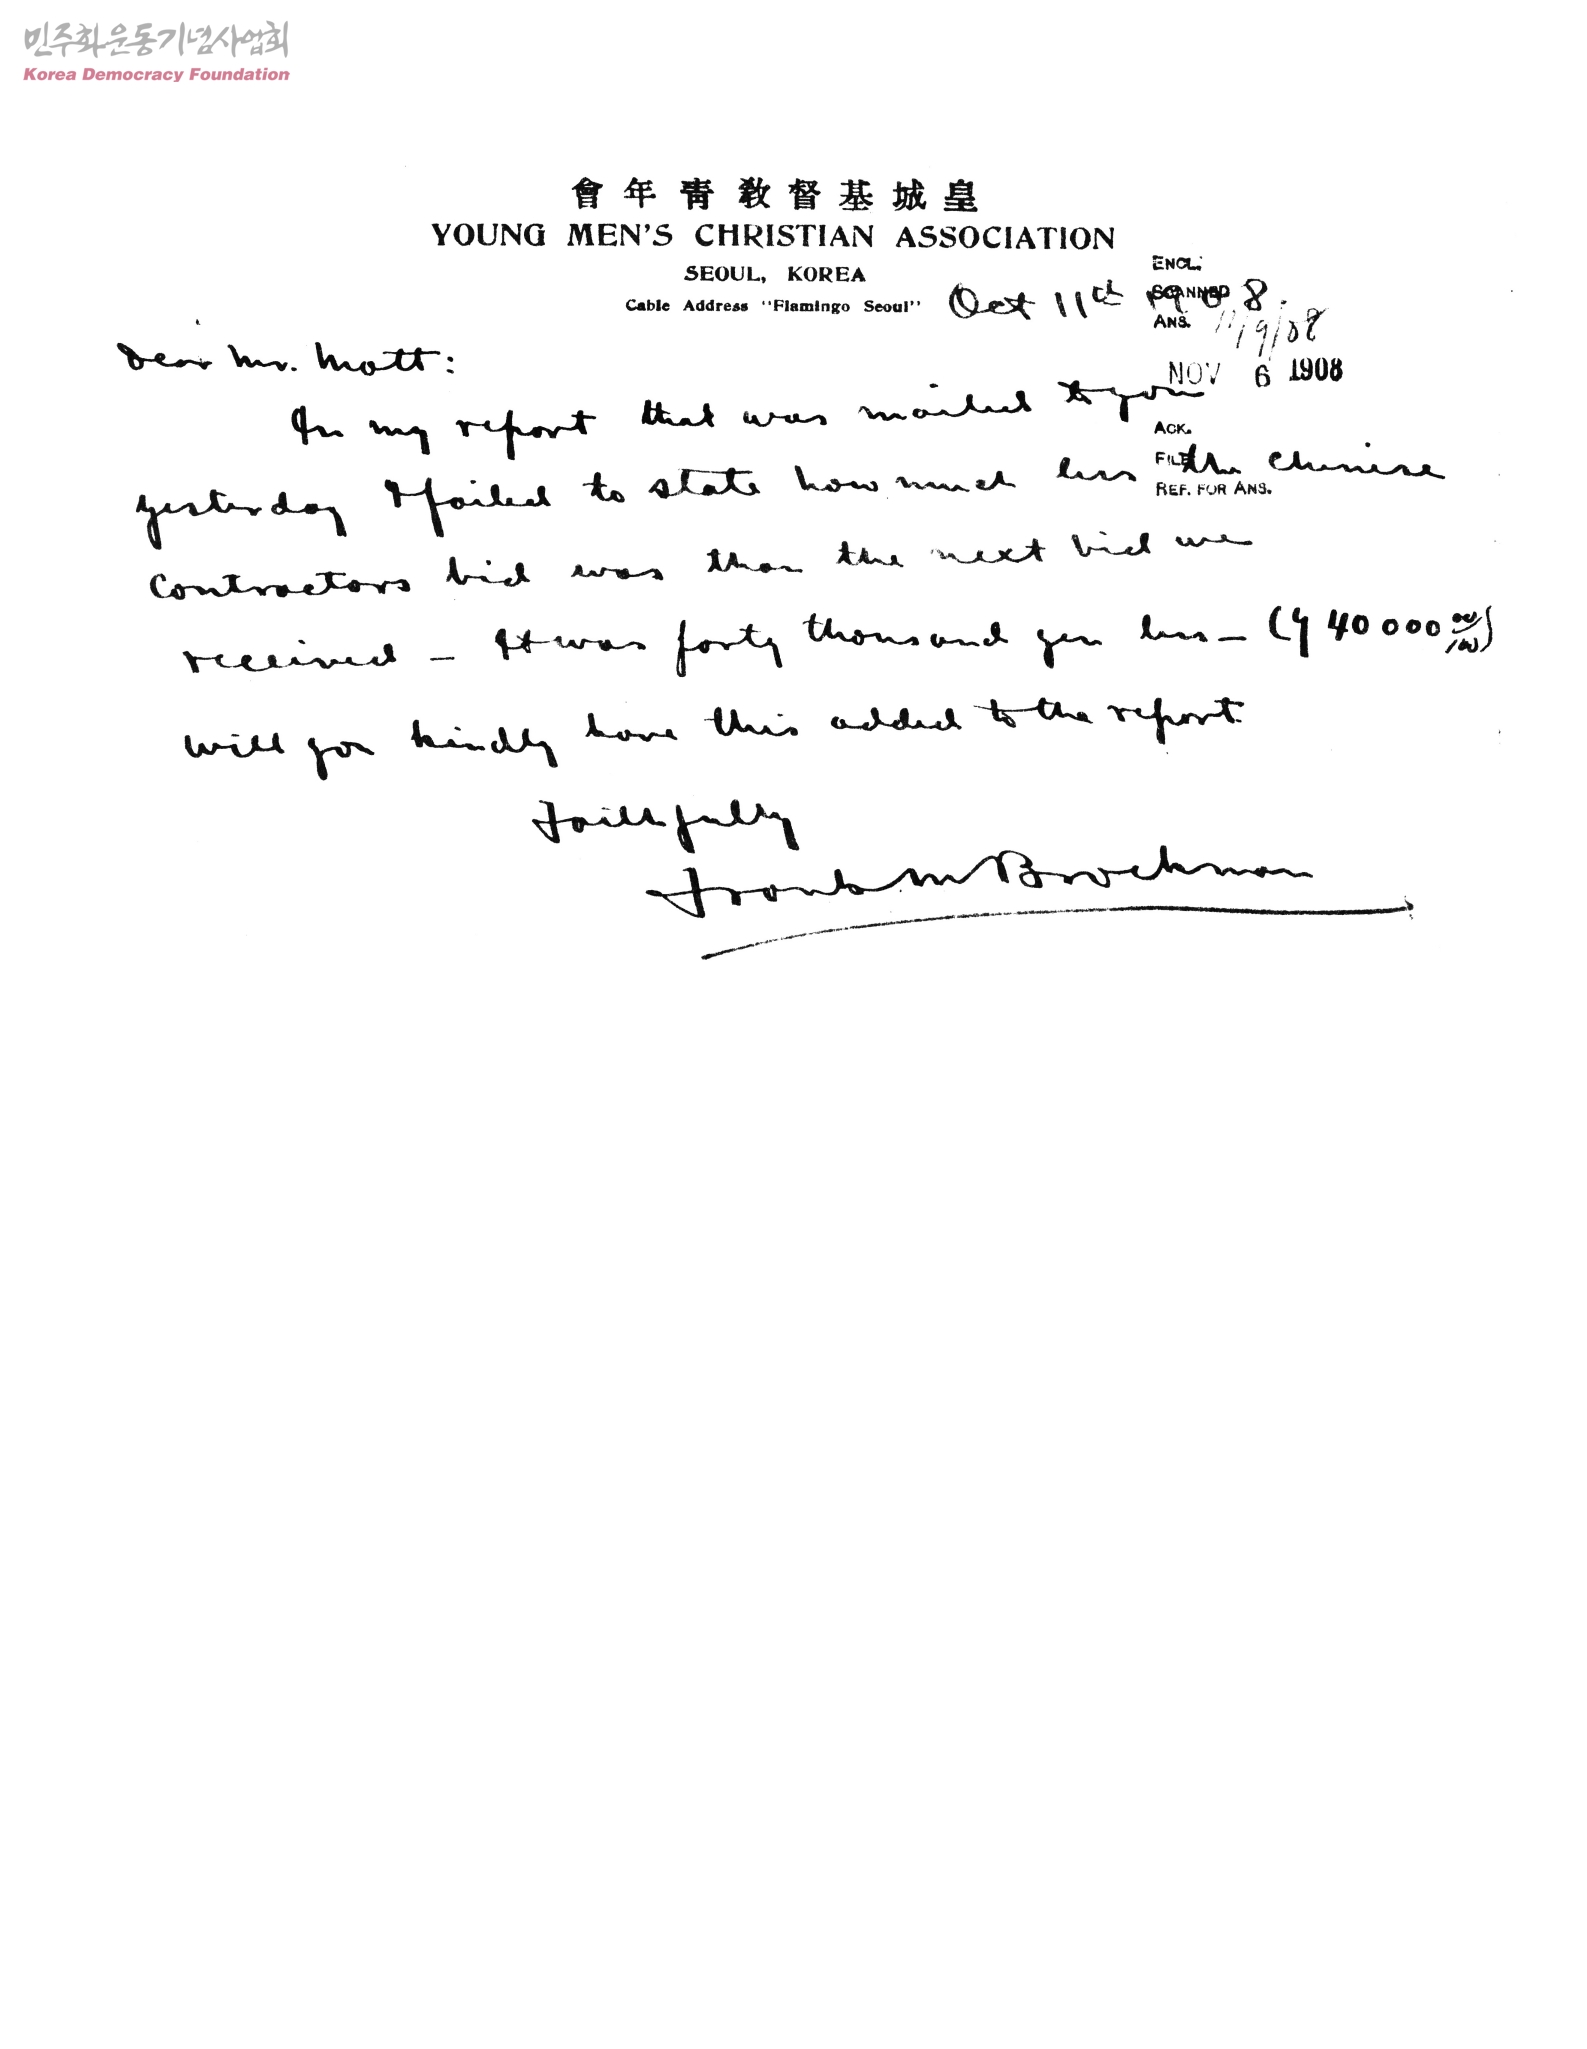 민주화운동기념사업회
Korea Democracy Foundation
會年靑敎督基城皇
YOUNG MEN'S CHRISTIAN ASSOCIATION
SEOUL, KOREA
Cable Address "Flamingo Seoul"
Oct 11th 1908.
ENCL.
SCANNED
ANS. 11/9/08
NOV 6 1908
ACK.
FILE
REF. FOR ANS.
Dear Mr. Mott:
In my report that was mailed to you
yesterday I failed to state how much less the Chinese
Contractors bid was than the next bid we
received - It was forty thousand yen less - (Y 40 000 00/100)
Will you kindly have this added to the report.
Faithfully
Frank M Brockman